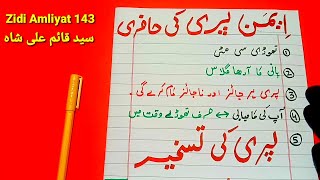 Zidi Amliyat 143
سید قائم علی شاہ
یمن پری کی حاضری
① تھوڑی سی مٹی
② پانی کا آدھا گلاس
③ پری ہر جائز اور ناجائز کام کرے گی۔
④ آپ کی کامیابی ↔ صرف تھوڑے وقت میں
⑤ پری کی تسخیر